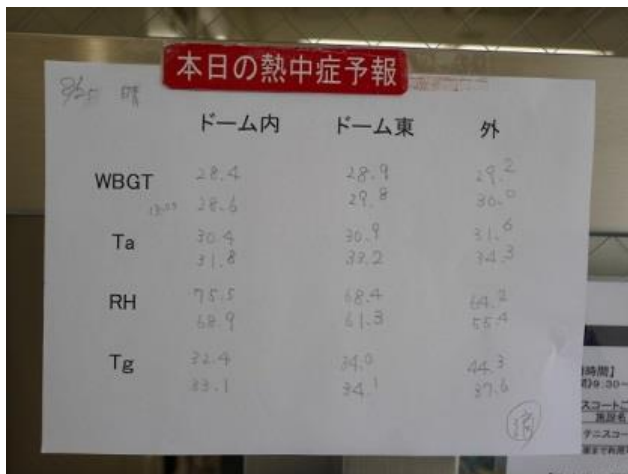 本日の熱中症予報
8/25 晴
ドーム内 ドーム東 外
WBGT 28.4 28.9 29.2
28.6 29.8 30.0
Ta 30.4 30.9 31.6
31.8 33.2 34.3
RH 75.5 68.4 64.2
68.9 61.3 55.4
Tg 32.4 34.0 44.3
33.1 34.1 37.6
時間】
9:30~
スコートご
施設名
テニスコー